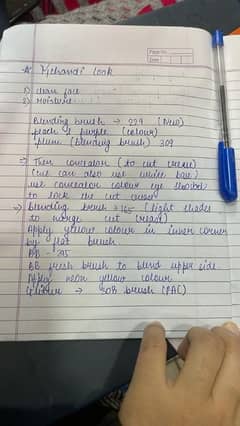 Page No.
Date
* Mehandi look
1) clean face
2) Moisture
Blending brush → 229 (New)
peach & purple (colour)
plum (blending brush) 309
→ Then concealor (to cut crease)
(we can also use white base)
use concealor colour eye shadow
to lock the cut crease
→ Blending brush → 165 (light shades
to merge cut (crease)
Apply yellow colour in inner corner
by flat brush
BB fresh brush to blend upper side
Apply neon yellow colour
Glitter → 50B brush (PAC)